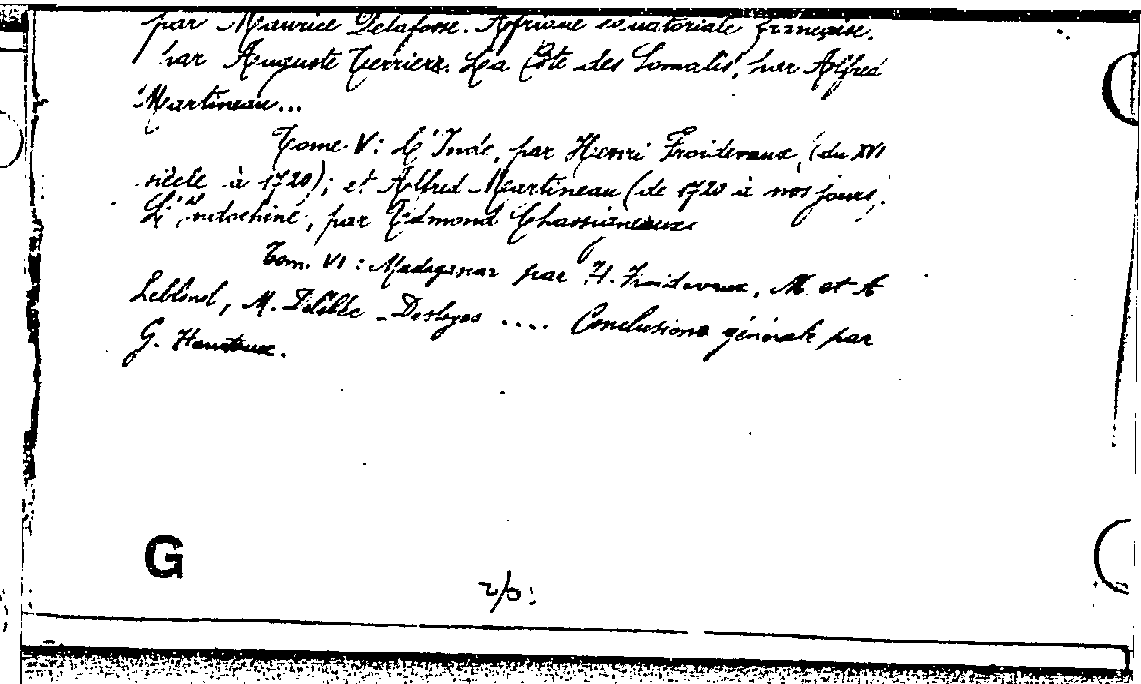 par Maurice Delafosse. Afrique equatoriale française.
par Auguste Terrierr. La Côte des Somalis, par Alfred
Martineau...
Tome V: L'Inde, par Henri Froidevaux, (du XVI
siècle à 1720); et Alfred Martineau (de 1720 à nos jours;
L'Indochine, par Edmond Chassigneaux.
Tom. VI: Madagascar par H. Froidevaux, M. et A
Leblond, M. Delélée - Desloges .... Conclusions générale par
G. Hanotaux.
G